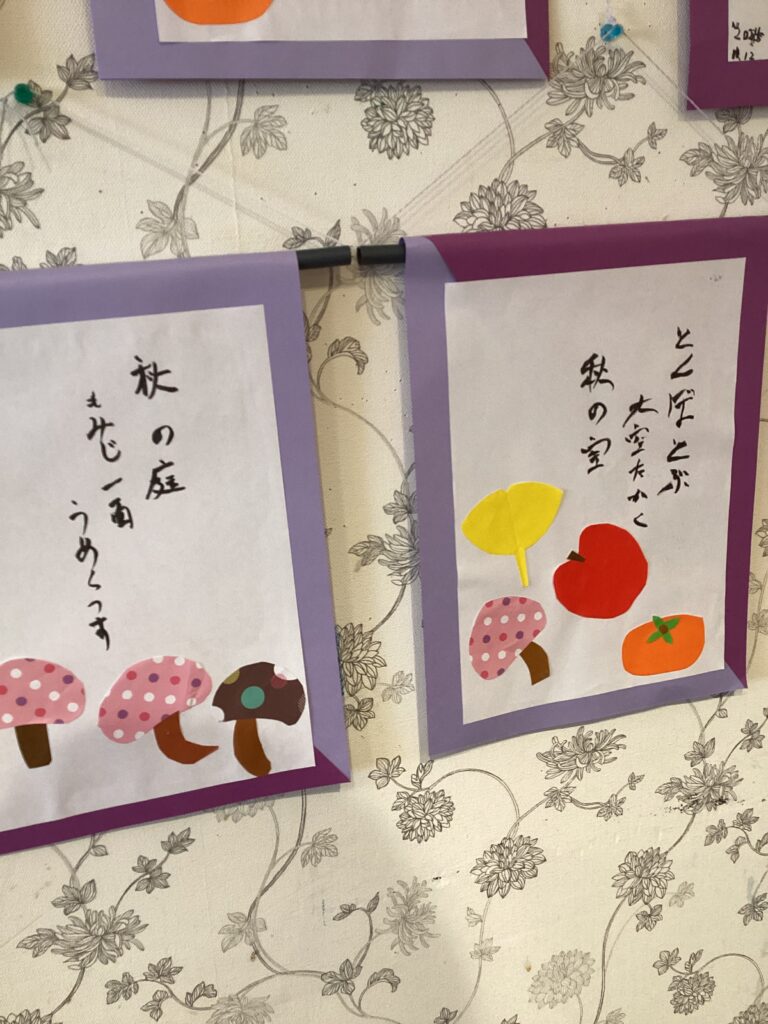 とんぼとぶ
大空たかく
秋の空
秋の庭
もみじ一面
うめくつす